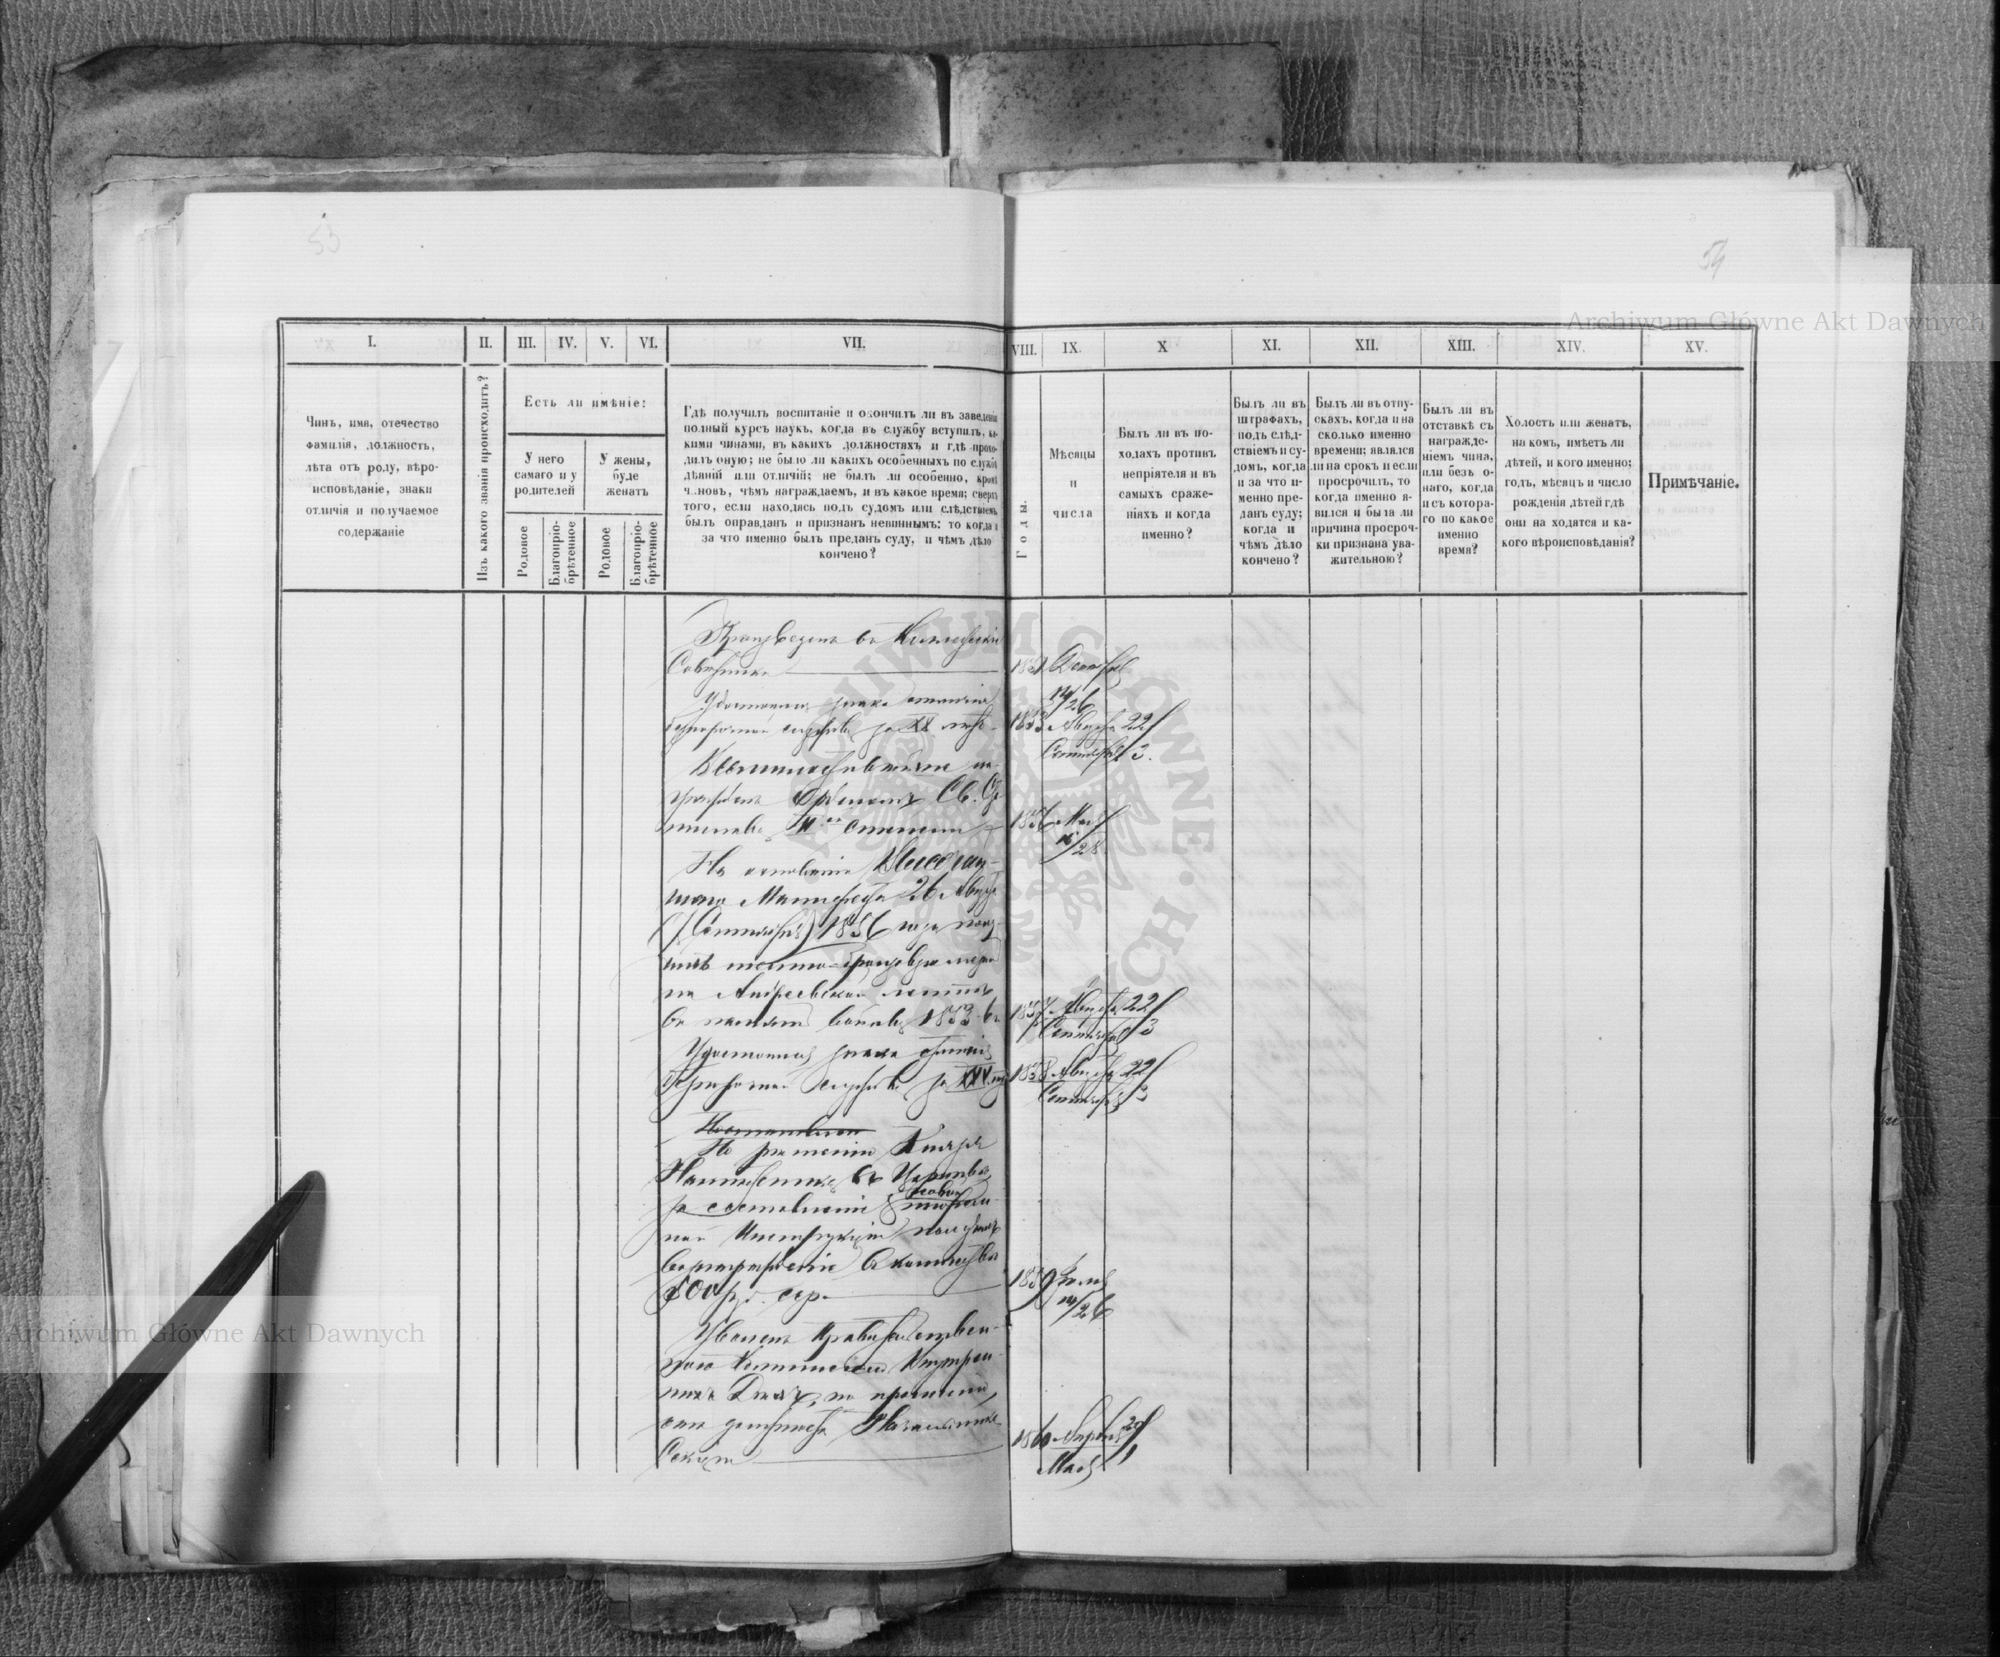 53
54
Archiwum Główne Akt Dawnych
I. II. III. IV. V. VI. VII. VIII. IX. X XI. XII. XIII. XIV. XV.
Чинъ, имя, отечество
фамилія, должность,
лѣта отъ роду, вѣро-
исповѣданіе, знаки
отличія и получаемое
содержаніе
Изъ какого званія происходитъ?
Есть ли имѣніе:
У него
самаго и у
родителей
У жены,
буде
женатъ
Родовое
Благопріо-
брѣтенное
Родовое
Благопріо-
брѣтенное
Гдѣ получилъ воспитаніе и окончилъ ли въ заведеніи
полный курсъ наукъ, когда въ службу вступилъ, ка-
кими чинами, въ какихъ должностяхъ и гдѣ прохо-
дилъ оную; не было ли какихъ особенныхъ по службѣ
дѣяній или отличій; не былъ ли особенно, кромѣ
чиновъ, чѣмъ награждаемъ, и въ какое время; сверхъ
того, если находясь подъ судомъ или слѣдствіемъ
былъ оправданъ и признанъ невиннымъ: то когда и
за что именно былъ преданъ суду, и чѣмъ дѣло
кончено?
Годы.
Мѣсяцы
и
числа
Былъ ли въ по-
ходахъ противъ
непріятеля и въ
самыхъ сраже-
ніяхъ и когда
именно?
Былъ ли въ
штрафахъ,
подъ слѣд-
ствіемъ и су-
домъ, когда
и за что и-
менно пре-
данъ суду;
когда и
чѣмъ дѣло
кончено?
Былъ ли въ отпу-
скахъ, когда и на
сколько именно
времени; явился
ли на срокъ и если
просрочилъ, то
когда именно я-
вился и была ли
причина просроч-
ки признана ува-
жительною?
Былъ ли въ
отставкѣ съ
награжде-
ніемъ чина,
или безъ о-
наго, когда
и съ котора-
го по какое
именно
время?
Холостъ или женатъ,
на комъ, имѣетъ ли
дѣтей, и кого именно;
годъ, мѣсяцъ и число
рожденія дѣтей гдѣ
они на ходятся и ка-
кого вѣроисповѣданія?
Примѣчаніе.
Произведенъ въ Коллежскіе
Совѣтники 1851 Декабря
14/26
Удостоенъ знака отличія
безпорочной службы за XX лѣтъ 1853 Августа 22/
Сентября 3.
Всемилостивѣйше на-
гражденъ Орденомъ Св. Ста
нислава II ой степени 1856 Мая
16/28
На основаніи Высочай-
шаго Манифеста 26 Августа
(/Сентября) 1856 года полу-
чилъ темно-бронзовую медаль
на Андреевской лентѣ
въ память войны 1853- 1857 Августа 22/
Сентября 3
Удостоенъ знака отличія
безпорочной службы за XXV лѣтъ 1858 Августа 22/
Сентября 3
По рѣшенію Князя
Намѣстника въ Царствѣ
за составленіе особой
ной Инструкціи получилъ
вознагражденіе въ количествѣ
500 руб. сер. 1859
14/26
Уволенъ Правительствен-
ною Коммиссіею Внутрен-
нихъ Дѣлъ, по прошенію,
отъ должности Начальника
Секціи 1860 Апрѣля 29/
Мая
Archiwum Główne Akt Dawnych
ARCHIWUM GŁÓWNE AKT DAWNYCH